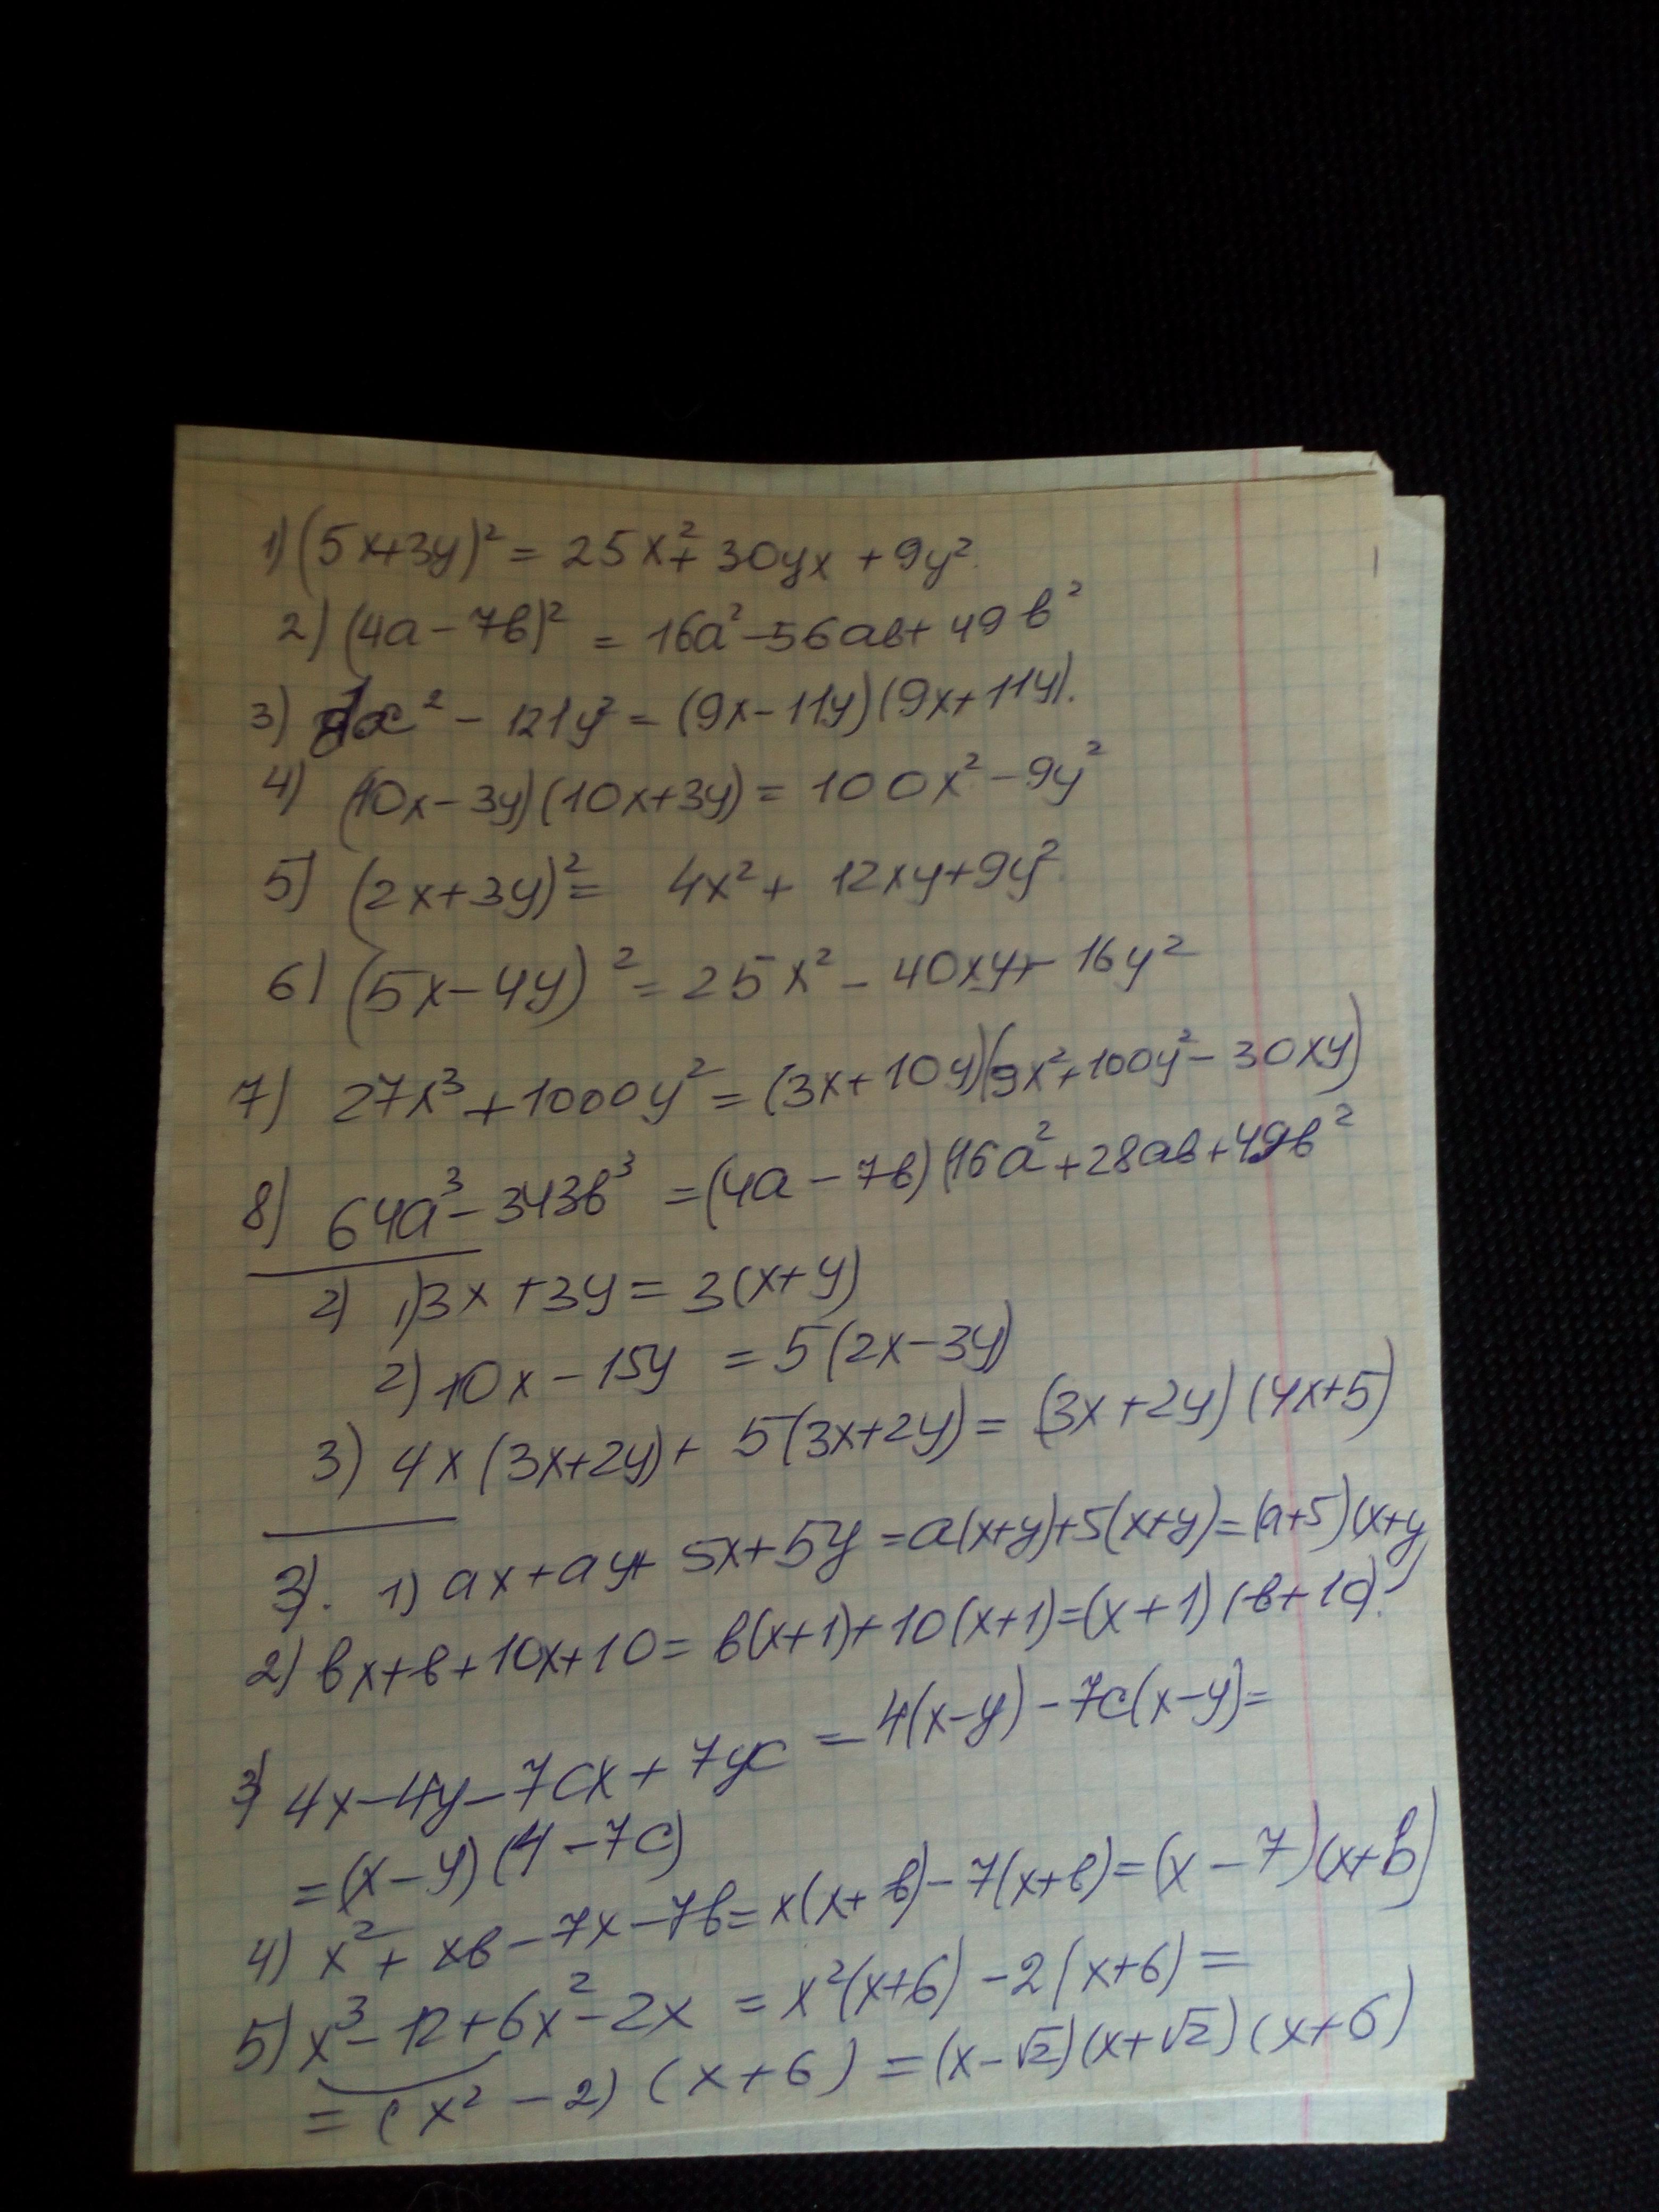 1) (5x+3y)² = 25x²+ 30yx + 9y².
2) (4a - 7b)² = 16a² - 56ab + 49b²
3) x² - 121y² = (9x - 11y)(9x + 11y).
4) (10x - 3y)(10x + 3y) = 100x² - 9y²
5) (2x + 3y)² = 4x² + 12xy + 9y².
6) (5x - 4y)² = 25x² - 40xy + 16y²
7) 27x³ + 1000y² = (3x + 10y)(9x² + 100y² - 30xy)
8) 64a³ - 343b³ = (4a - 7b)(16a² + 28ab + 49b²
2) 1) 3x + 3y = 3(x + y)
2) 10x - 15y = 5(2x - 3y)
3) 4x(3x + 2y) + 5(3x + 2y) = (3x + 2y)(4x + 5)
3). 1) ax + ay + 5x + 5y = a(x+y) + 5(x+y) = (a+5)(x+y)
2) bx + b + 10x + 10 = b(x+1) + 10(x+1) = (x+1)(b+10).
3) 4x - 4y - 7cx + 7yc = 4(x-y) - 7c(x-y) =
= (x - y)(4 - 7c)
4) x² + xb - 7x - 7b = x(x + b) - 7(x+b) = (x - 7)(x+b)
5) x³ - 12 + 6x² - 2x = x²(x+6) - 2(x+6) =
= (x² - 2)(x+6) = (x - √2)(x + √2)(x+6)